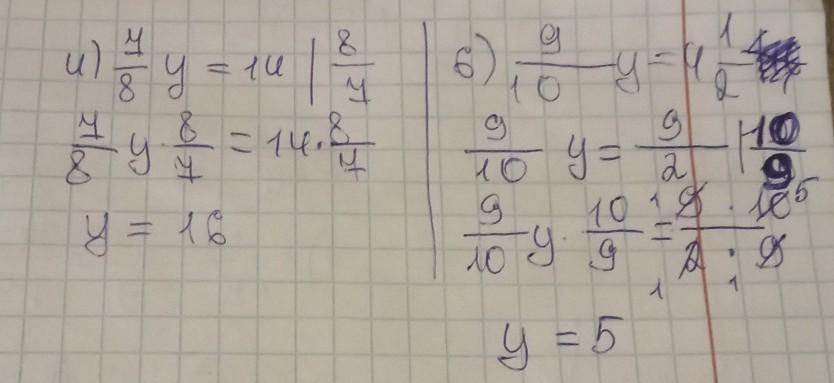 и) 7/8 y = 14 | 8/7
7/8 y · 8/7 = 14 · 8/7
y = 16
б) 9/10 y = 4 1/2
9/10 y = 9/2 | 10/9
9/10 y · 10/9 = 9 · 10 / 2 · 9
1 5
1 1
y = 5